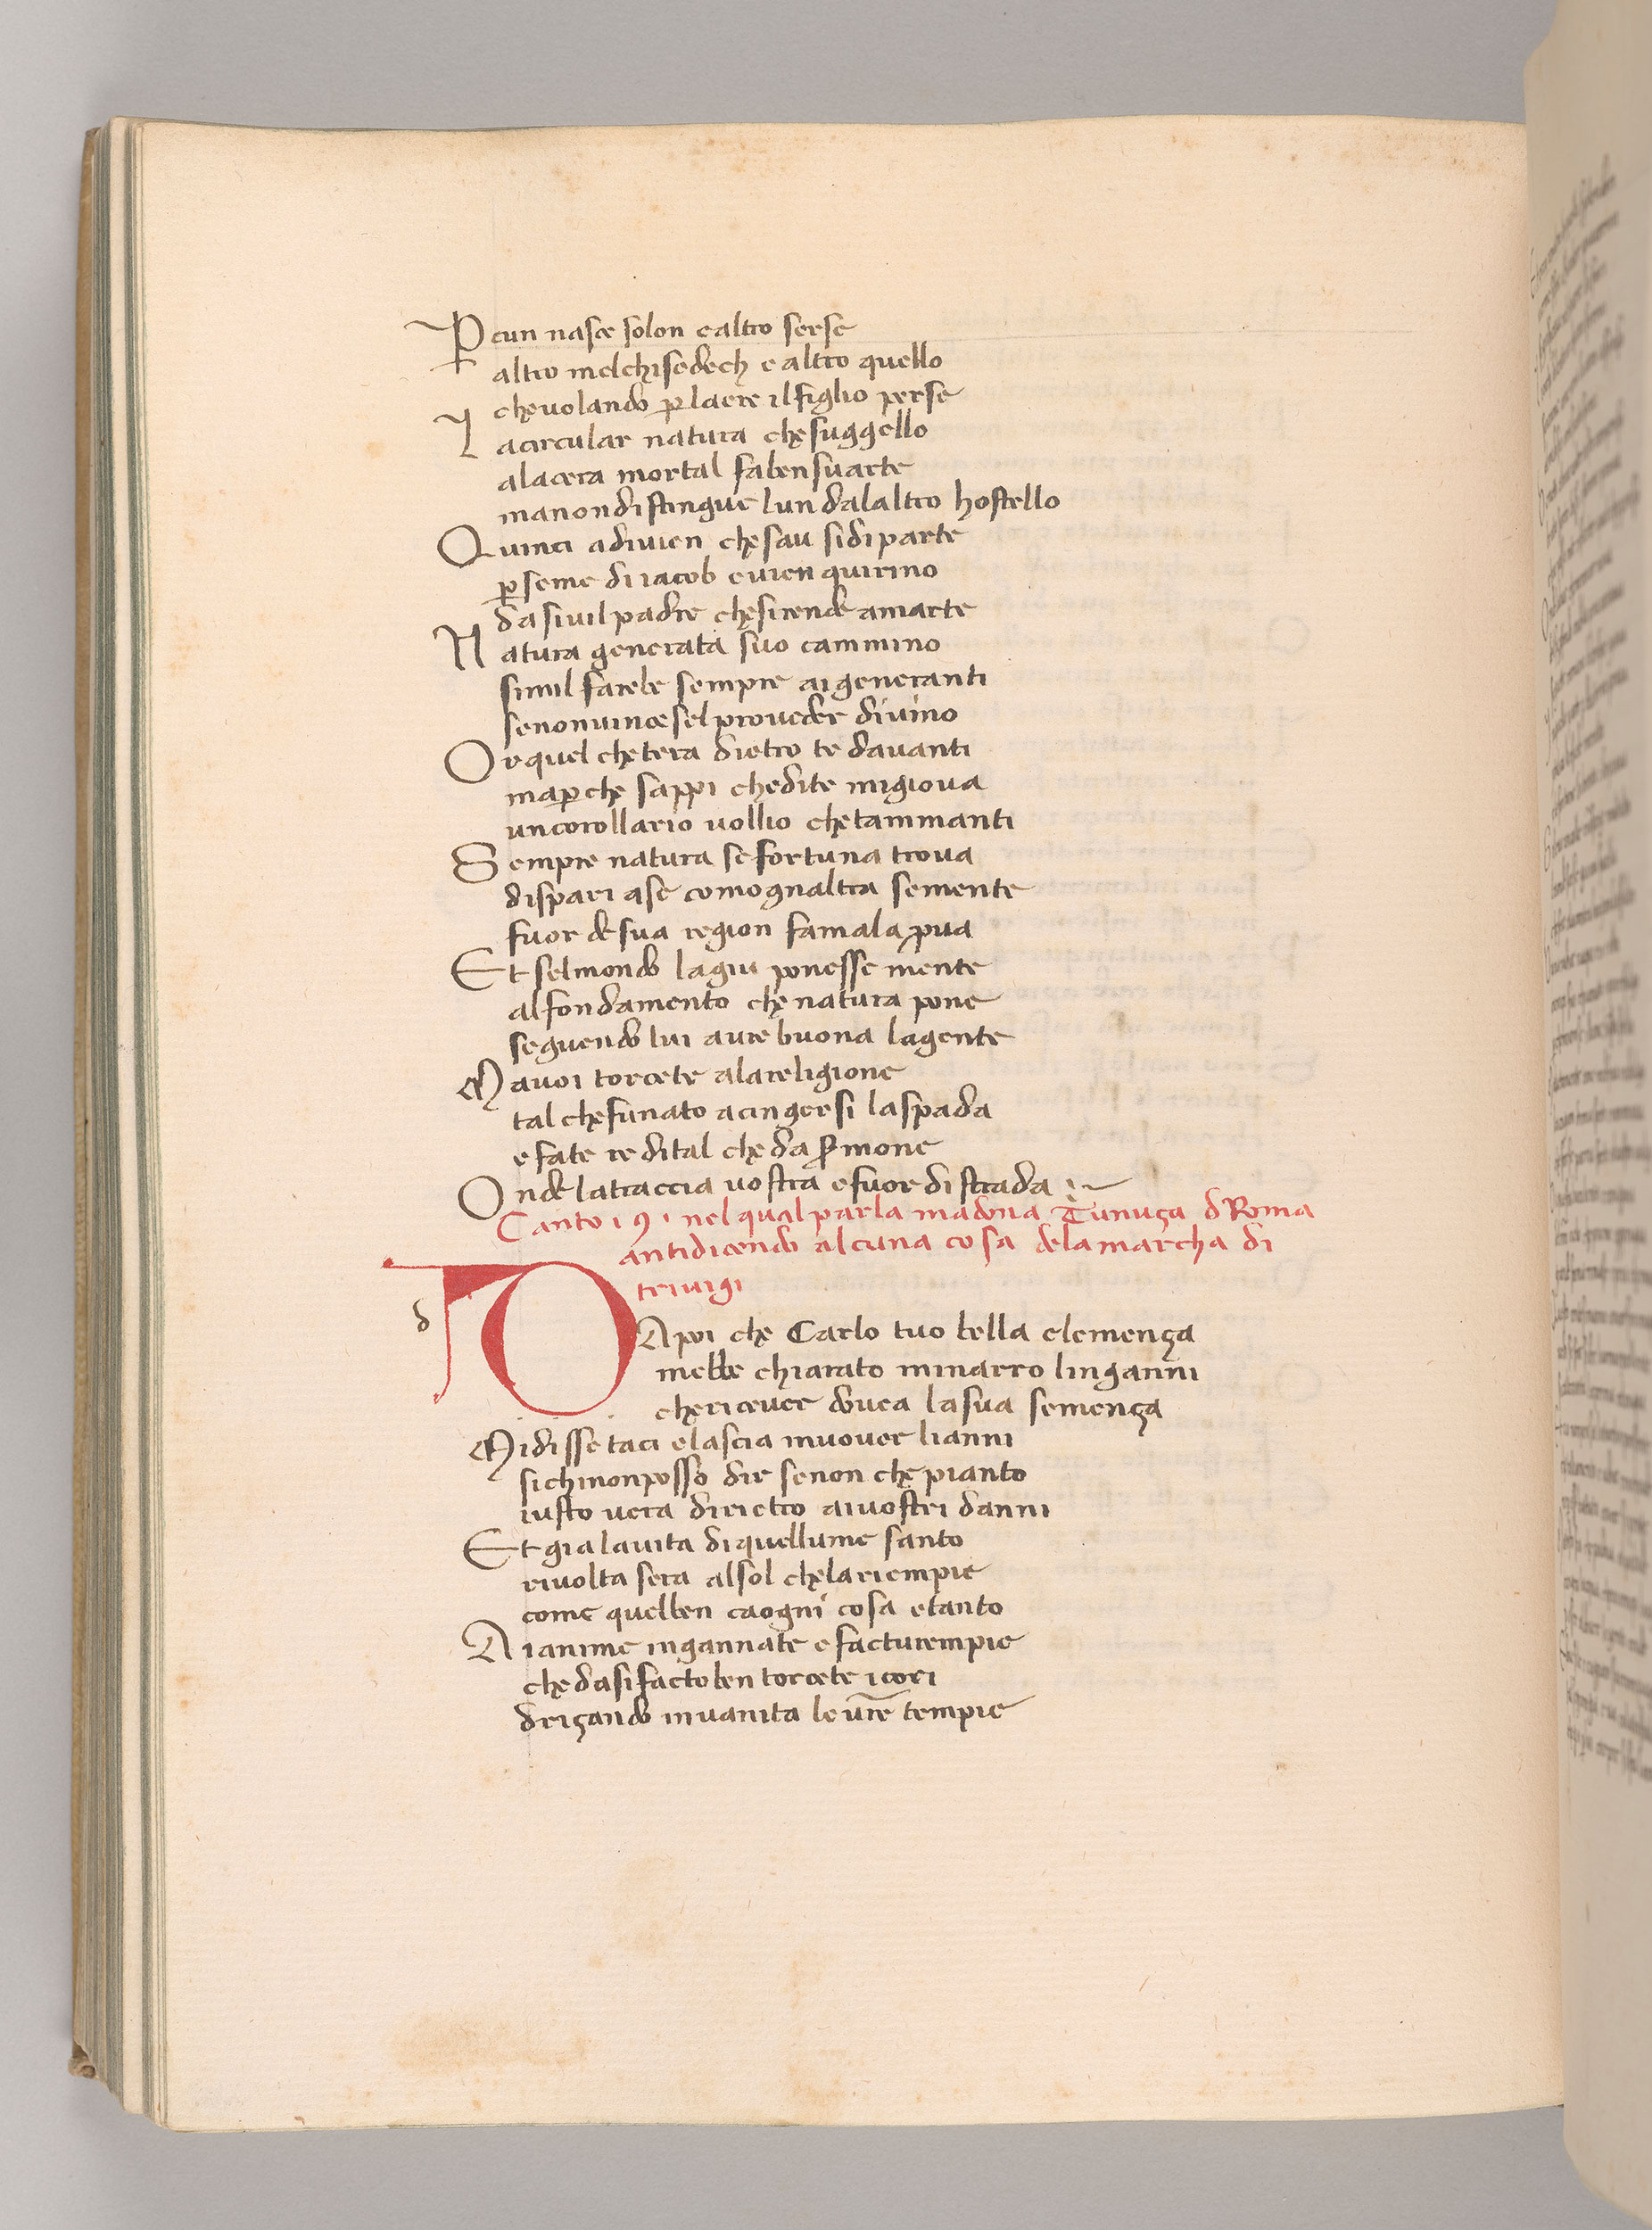 P cun nasce solon e altro serse
altro melchisedech e altro quello
che volando ꝑ laere il figlio perse
L a circular natura che suggello
a la cera mortal fa ben su arte
ma non distingue lun dalaltro hostello
Quinci adivien chesau si diparte
ꝑ seme di iacob e vien quirino
da si vil padre che si rende a marte
N atura generata suo cammino
simil farebe sempre ai generanti
se non vincesse l proveder divino
Or quel che tera dietro te davanti
ma ꝑche sappi che di te mi giova
un corollario vollio che tammanti
Sempre natura se fortuna trova
dispari a se comognaltra semente
fuor de sua region fa mala ꝓva
Et sel mondo la giu ponesse mente
al fondamento che natura pone
seguendo lui avre buona la gente
Ma voi torcete a la religione
tal che fu nato a cingersi la spada
e fate re di tal che da ẜmone
Onde la traccia vostra e fuor di strada
Canto ı 9 ı nel qual parla madona Cunuça d Roma
antidicendo alcuna cosa de la marcha di
trivigi
d
DApoi che Carlo tuo bella clemença
mebbe chiarato mi narro linganni
che ricever dovea la sua semença
Mi disse taci e lascia muover li anni
si chi non posso dir se non che pianto
iusto vera dirietro ai vostri danni
Et gia la vita di quel lume santo
rivolta sera al sol che la riempie
come quel ben ca ogni cosa e tanto
Ai anime ingannate e facture empie
che da si facto ben torcete i cori
driçando in vanita le vr̄e tempie